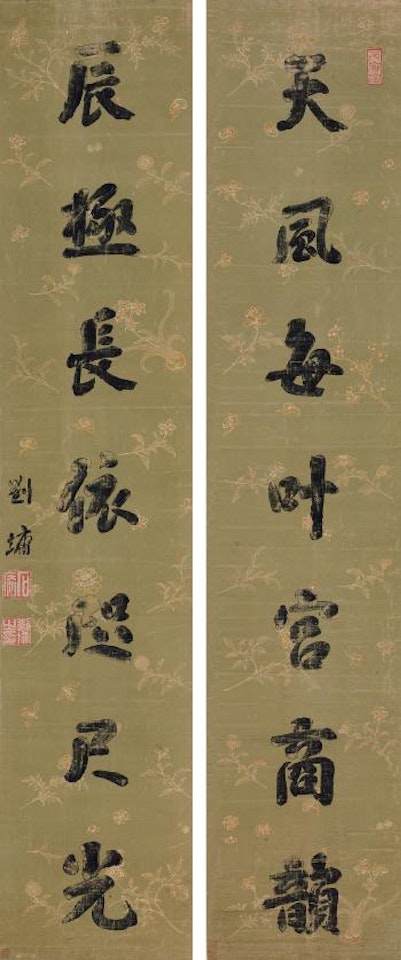 天風每叶宮商韻
辰極長依咫尺光
劉墉